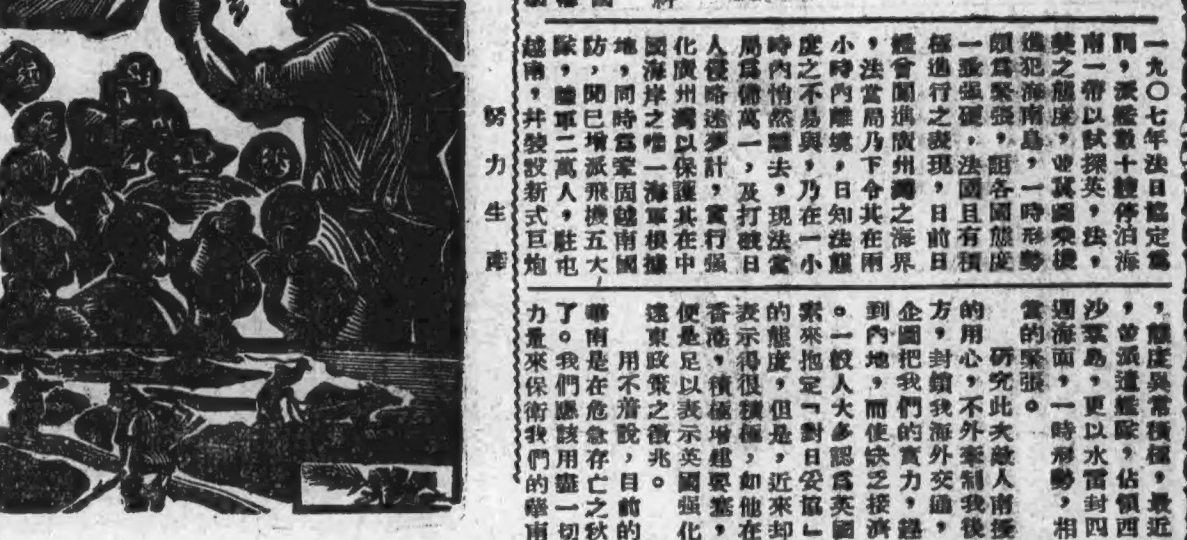 一九〇七年法日協定當
間，派艦數十艘停泊海
南一帶以試探英，法，
美之態度，並冀圖乘機
進犯海南島，一時形勢
頗爲緊張，詎各國態度
一强硬，法國且有積
極進行之表現，日前日
艦曾闖進廣州灣之海界
，法當局乃下令其在兩
小時內離境，日知法態
度之不易與，乃在一小
時內悄然離去，現法當
局爲備萬一，及打破日
人侵略迷夢計，實行强
化廣州灣以保護其在中
國海岸之唯一海軍根據
地，同時爲鞏固越南國
防，聞已增派飛機五大
隊，陸軍二萬人，駐屯
越南，幷裝設新式巨炮
，態度異常積極，最近
，並派遣艦隊，佔領西
沙羣島，更以水雷封四
週海面，一時形勢，相
當的緊張。
研究此次敵人南侵
的用心，不外牽制我後
方，封鎖我海外交通，
企圖把我們的實力，趕
到內地，而使缺乏接濟
。一般人大多認爲英國
素來抱定「對日妥協」
的態度，但是，近來却
表示得很積極，如他在
香港，積極增建要塞，
便是足以表示英國强化
遠東政策之徵兆。
用不着說，目前的
華南是在危急存亡之秋
了。我們應該用盡一切
力量來保衛我們的華南
努力生產